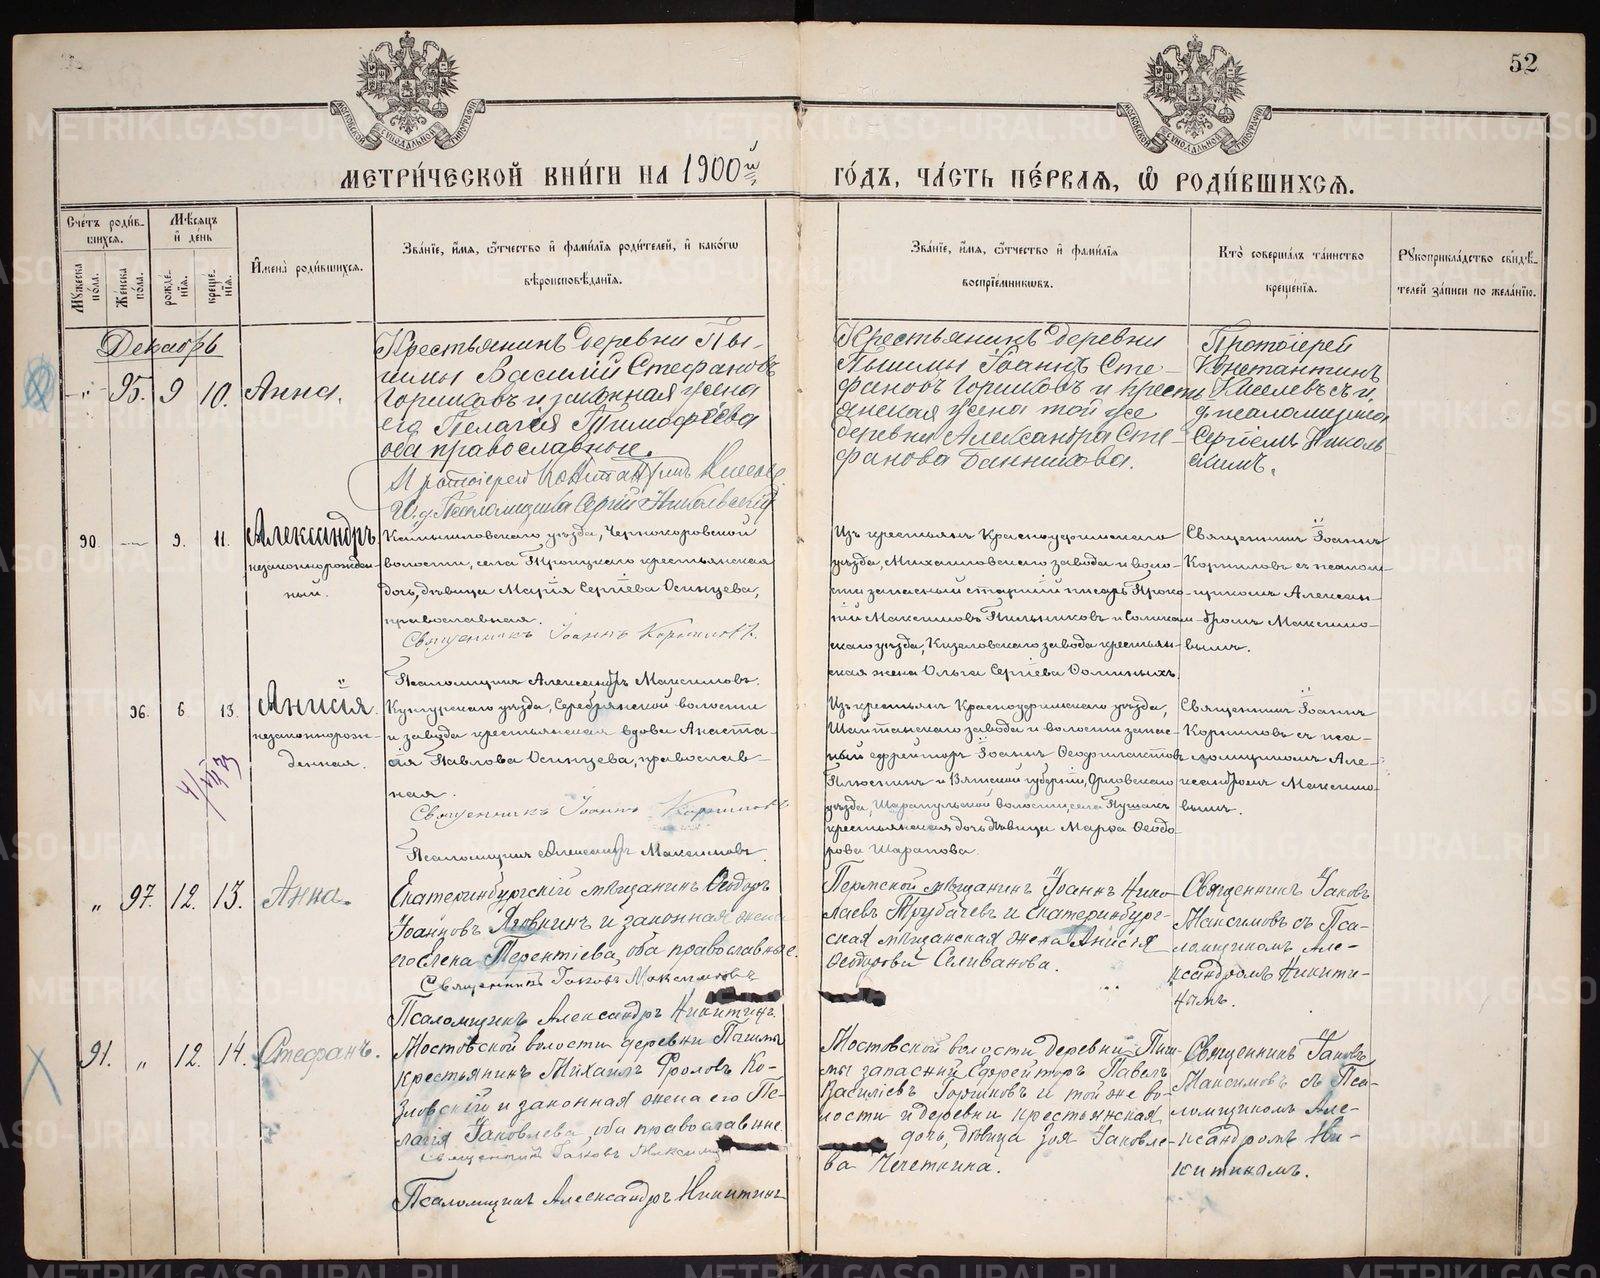 52
МЕТРИ́ЧЕСКОЙ КНИ́ГИ НА 1900й
ГО́ДЪ, ЧА́СТЬ ПЕ́РВАѦ, Ѡ҆ РОДИ́ВШИХСѦ.
Сче́тъ роди́в-
шихся.
Мѣ́сяцъ
и҆ де́нь
Му́жеска по́ла.
Же́нска по́ла.
рожде́-
нїя.
креще́-
нїя.
И҆мена̀ роди́вшихся.
Зва́нїе, и҆́мя, ѻ҆́тчество и҆ фами́лїя роди́телей, и҆ како́гѡ
вѣроисповѣ́данїя.
Зва́нїе, и҆́мя, ѻ҆́тчество и҆ фами́лїя
воспрїе́мникѡвъ.
Кто̀ соверша́лъ та́инство
креще́нїя.
Рꙋкоприкла́дство свидѣ́-
телей за́писи по жела́нїю.
Декабрь
95. 9 10. Анна.
Крестьянинъ деревни Пы-
шмы Василій Стефановъ
Горшковъ и законная жена
его Пелагія Тимофѣева
оба православные.
Протоіерей Константинъ
И. д. Псаломщика Сергій Никольскій
Крестьянинъ деревни
Пышмы Іоаннъ Сте-
фановъ Горшковъ и кресть
янская жена той же
деревни Александра Сте-
фанова Банникова.
Протоіерей
Константинъ
Киселевъ съ и.
д. псаломщика
Сергіемъ Николь
скимъ.
90. — 9. 11. Александръ
незаконнорожден-
ный.
Камышловскаго уѣзда, Чернокоровской
волости, села Троицкаго крестьянская
дочь, дѣвица Марія Сергіева Осинцева,
православная.
Священникъ Іоаннъ Корниловъ.
Псаломщикъ Александръ Максимовъ.
Изъ крестьянъ Красноуфимскаго
уѣзда, Михайловскаго завода и воло-
сти запасный старшій писарь Проко-
пій Максимовъ Пильниковъ и Соликам-
скаго уѣзда, Кизеловскаго завода крестьян-
ская жена Ольга Сергіева
Священникъ Іоаннъ
Корниловъ съ псалом-
щикомъ Алексан-
дромъ Максимо-
вымъ.
96. 6 13. Анисія.
незаконнорож-
денная.
Кунгурскаго уѣзда, Серебрянской волости
и завода крестьянская вдова Анаста-
сія Павлова Осинцева, православ-
ная.
Священникъ Іоаннъ Корниловъ
Псаломщикъ Александръ Максимовъ.
Изъ крестьянъ Красноуфимскаго уѣзда,
Шайтанскаго завода и волости запас-
ный ефрейторъ Іоаннъ Ѳеофилактовъ
и Вятской губерніи, Орловскаго
уѣзда, Шарапульской волости, села
крестьянская дочь дѣвица Марѳа Ѳеодо-
рова Шарапова
Священникъ Іоаннъ
Корниловъ съ пса-
ломщикомъ Але-
ксандромъ Максимо-
вымъ.
„ 97. 12. 13. Анна.
Екатеринбургскій мѣщанинъ Ѳеодоръ
Іоанновъ и законная жена
его Елена Терентіева, оба православные.
Священникъ Іаковъ Максимовъ
Псаломщикъ Александръ Никитинъ
Пермской мѣщанинъ Іоаннъ Нико-
лаевъ Трубачевъ и Екатеринбург-
ская мѣщанская жена Анисія
Ѳеодорова Селиванова.
Священникъ Іаковъ
Максимовъ съ Пса-
ломщикомъ Але-
ксандромъ Никити-
нымъ.
91. „ 12. 14. Стефанъ.
Мостовской волости деревни Пышмы
крестьянинъ Михаилъ Фроловъ Ко-
зловскій и законная жена его Пе-
лагія Іаковлева, оба православные.
Священникъ Іаковъ Максимовъ
Псаломщикъ Александръ Никитинъ
Мостовской волости деревни Пыш-
мы запасный Ефрейторъ Павелъ
Василіевъ Горшковъ и той же во-
лости и деревни крестьянская
дочь, дѣвица Зоя Іаковле-
ва Чечеткина.
Священникъ Іаковъ
Максимовъ съ Пса-
ломщикомъ Але-
ксандромъ Ни-
китинымъ.